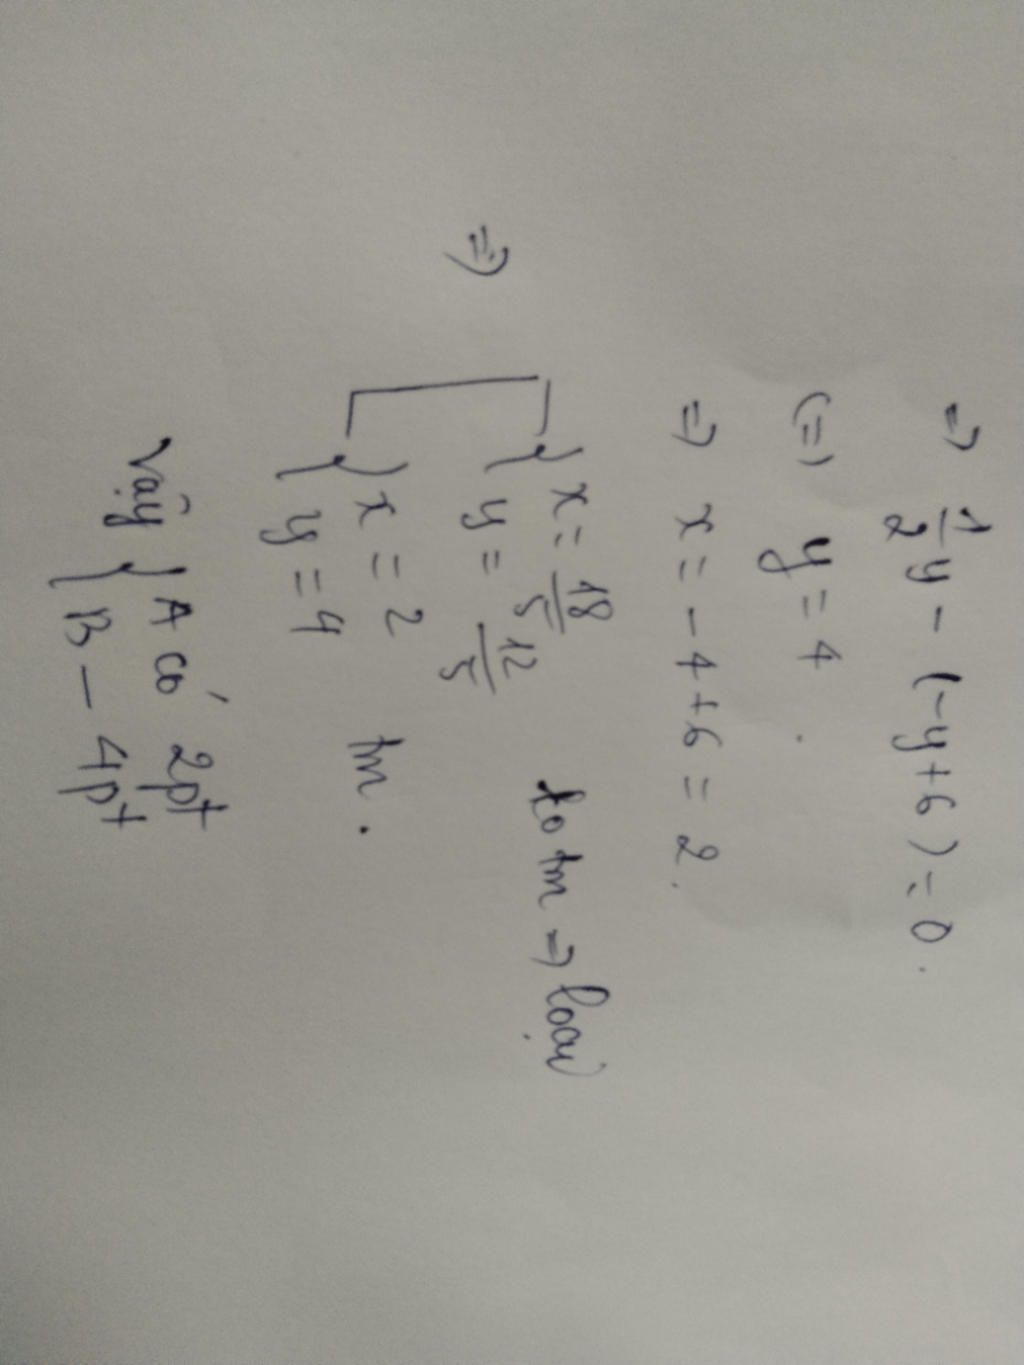 => 1/2 y - (-y+6) = 0.
(=) y = 4.
=> x = -4+6 = 2.
=> x = 18/5
y = 12/5 ko tm => loại
x = 2
y = 4 tm.
Vậy A có 2pt
B — 4pt